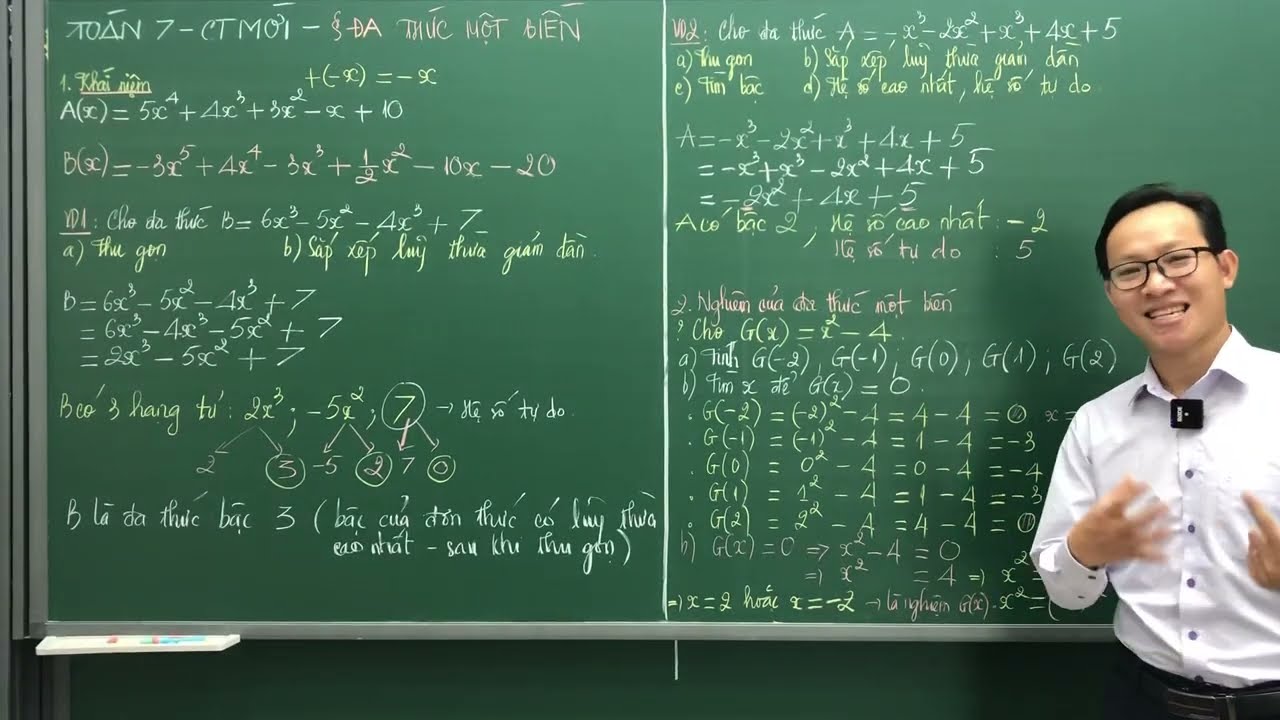 TOÁN 7 - CT MỚI - § ĐA THỨC MỘT BIẾN
1. Khái niệm
+(-x) = -x
A(x) = 5x⁴ + 4x³ + 3x² - x + 10
B(x) = -3x⁵ + 4x⁴ - 3x³ + 1/2 x² - 10x - 20
VD1: Cho đa thức B = 6x³ - 5x² - 4x³ + 7
a) Thu gọn b) Sắp xếp luỹ thừa giảm dần.
B = 6x³ - 5x² - 4x³ + 7
= 6x³ - 4x³ - 5x² + 7
= 2x³ - 5x² + 7
B có 3 hạng tử: 2x³; -5x²; 7 → Hệ số tự do.
2 3 -5 2 7 0
B là đa thức bậc 3 (bậc của đơn thức có luỹ thừa
cao nhất - sau khi thu gọn)
VD2: Cho đa thức A = -x³ - 2x² + x³ + 4x + 5
a) Thu gọn b) Sắp xếp luỹ thừa giảm dần
c) Tìm bậc d) Hệ số cao nhất, hệ số tự do.
A = -x³ - 2x² + x³ + 4x + 5
= -x³ + x³ - 2x² + 4x + 5
= -2x² + 4x + 5
A có bậc 2, Hệ số cao nhất: -2
Hệ số tự do : 5
2. Nghiệm của đa thức một biến
? Cho G(x) = x² - 4.
a) Tính G(-2), G(-1); G(0); G(1); G(2)
b) Tìm x để G(x) = 0.
. G(-2) = (-2)² - 4 = 4 - 4 = 0 x =
. G(-1) = (-1)² - 4 = 1 - 4 = -3
. G(0) = 0² - 4 = 0 - 4 = -4
. G(1) = 1² - 4 = 1 - 4 = -3
. G(2) = 2² - 4 = 4 - 4 = 0
b) G(x) = 0 => x² - 4 = 0
=> x² = 4 => x² =
=> x = 2 hoặc x = -2 → là nghiệm G(x). x² = (